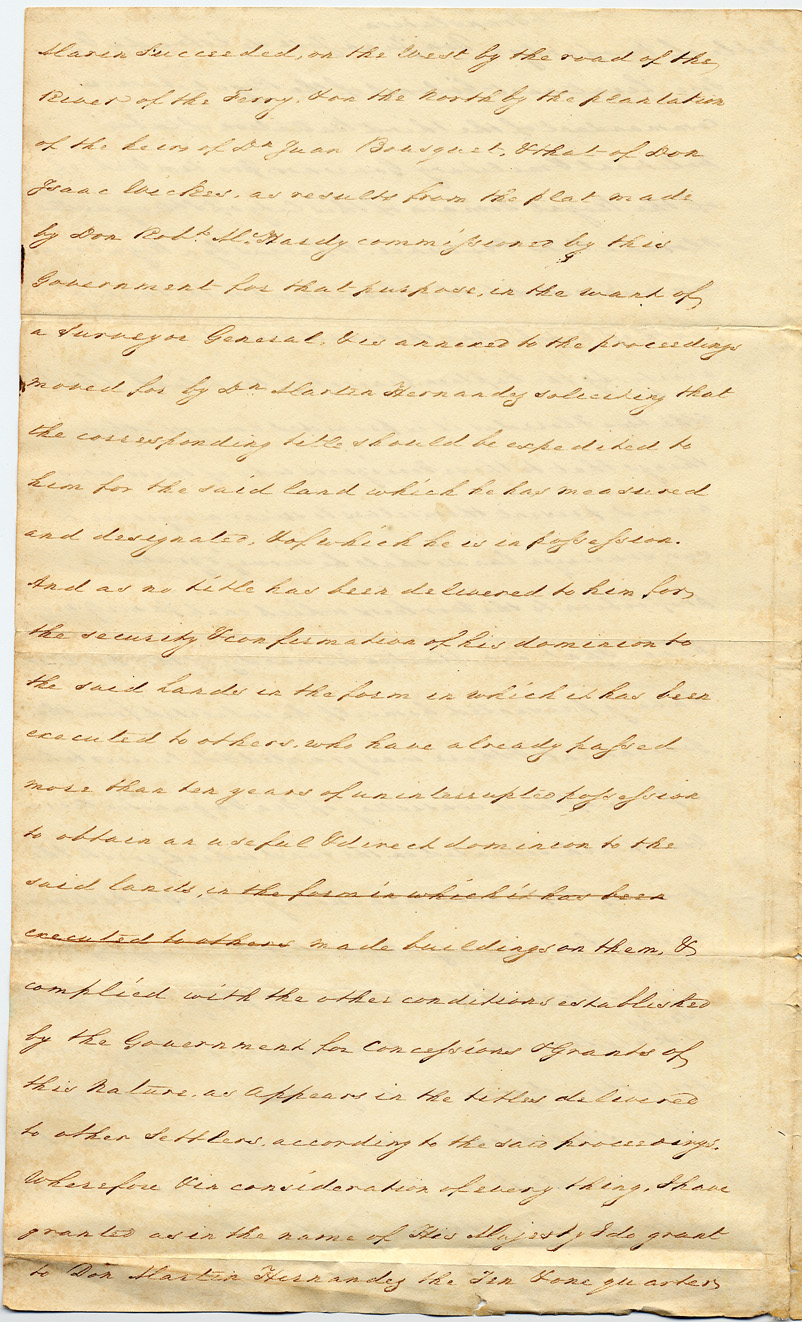 Marin Succeeded, on the West by the road of the
River of the Ferry, & on the North by the plantation
of the heirs of Dn Juan Bousquet, & that of Don
Isaac Wickes, as results from the plat made
by Don Robt. McHardy commissioned by this
Government for that purpose, in the want of
a Surveyor General, & is annexed to the proceedings
moved for by Dn Martin Hernandez soliciting that
the corresponding title should be expedited to
him for the said land which he has measured
and designated, & of which he is in possession.
And as no title has been delivered to him for
the security & confirmation of his dominion to
the said Lands in the form in which it has been
executed to others, who have already passed
more than ten years of uninterrupted possession
to obtain an useful & direct dominion to the
said lands, in the form in which it has been
executed to others made buildings on them, &
complied with the other conditions established
by the Government for Concessions & Grants of
this Nature, as appears in the titles delivered
to other Settlers, according to the said proceedings.
Wherefore & in consideration of every thing, I have
granted as in the name of His Majesty I do grant
to Don Martin Hernandez the Ten & one quarter